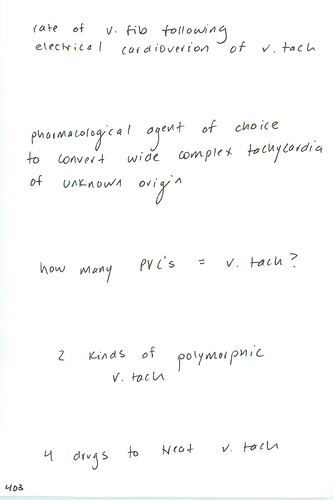 rate of v. fib following
electrical cardioversion of v. tach
pharmacological agent of choice
to convert wide complex tachycardia
of unknown origin
how many PVC's = v. tach?
2 kinds of polymorphic
v. tach
4 drugs to treat v. tach
403